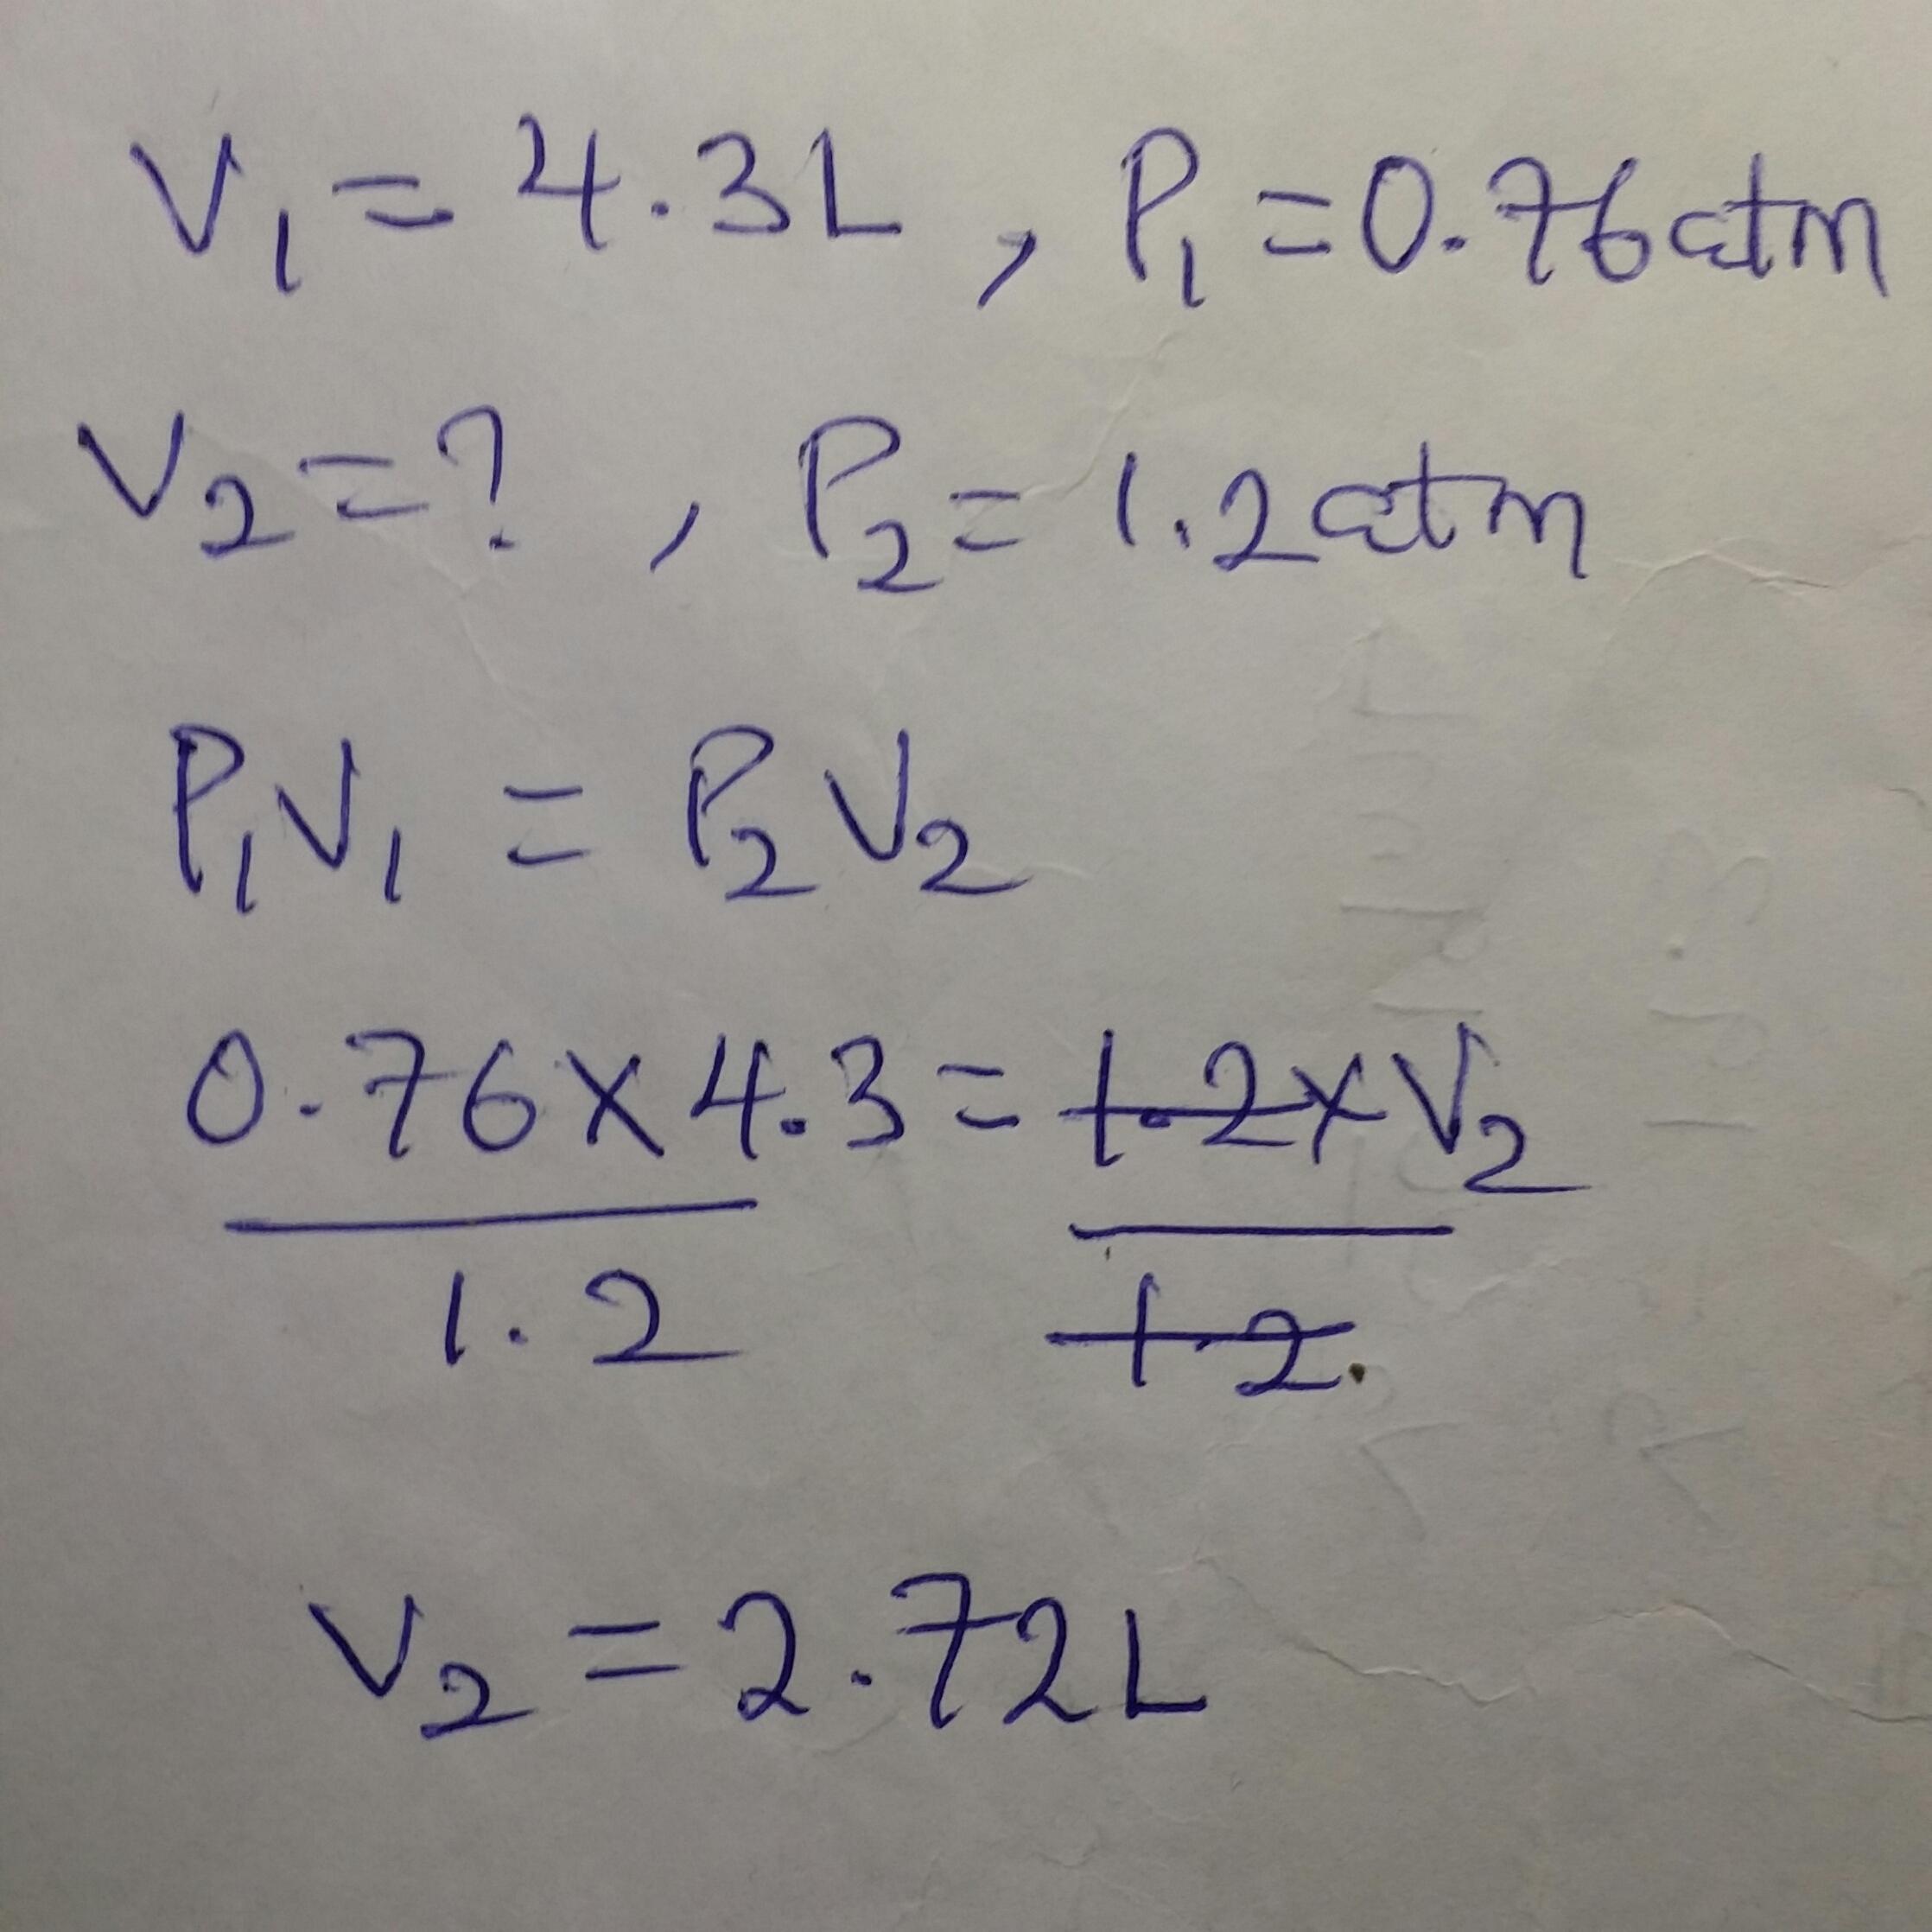 V₁ = 4.3L , P₁ = 0.76atm
V₂ = ? , P₂ = 1.2atm
P₁V₁ = P₂V₂
0.76 x 4.3 = 1.2 x V₂
1.2 1.2.
V₂ = 2.72L